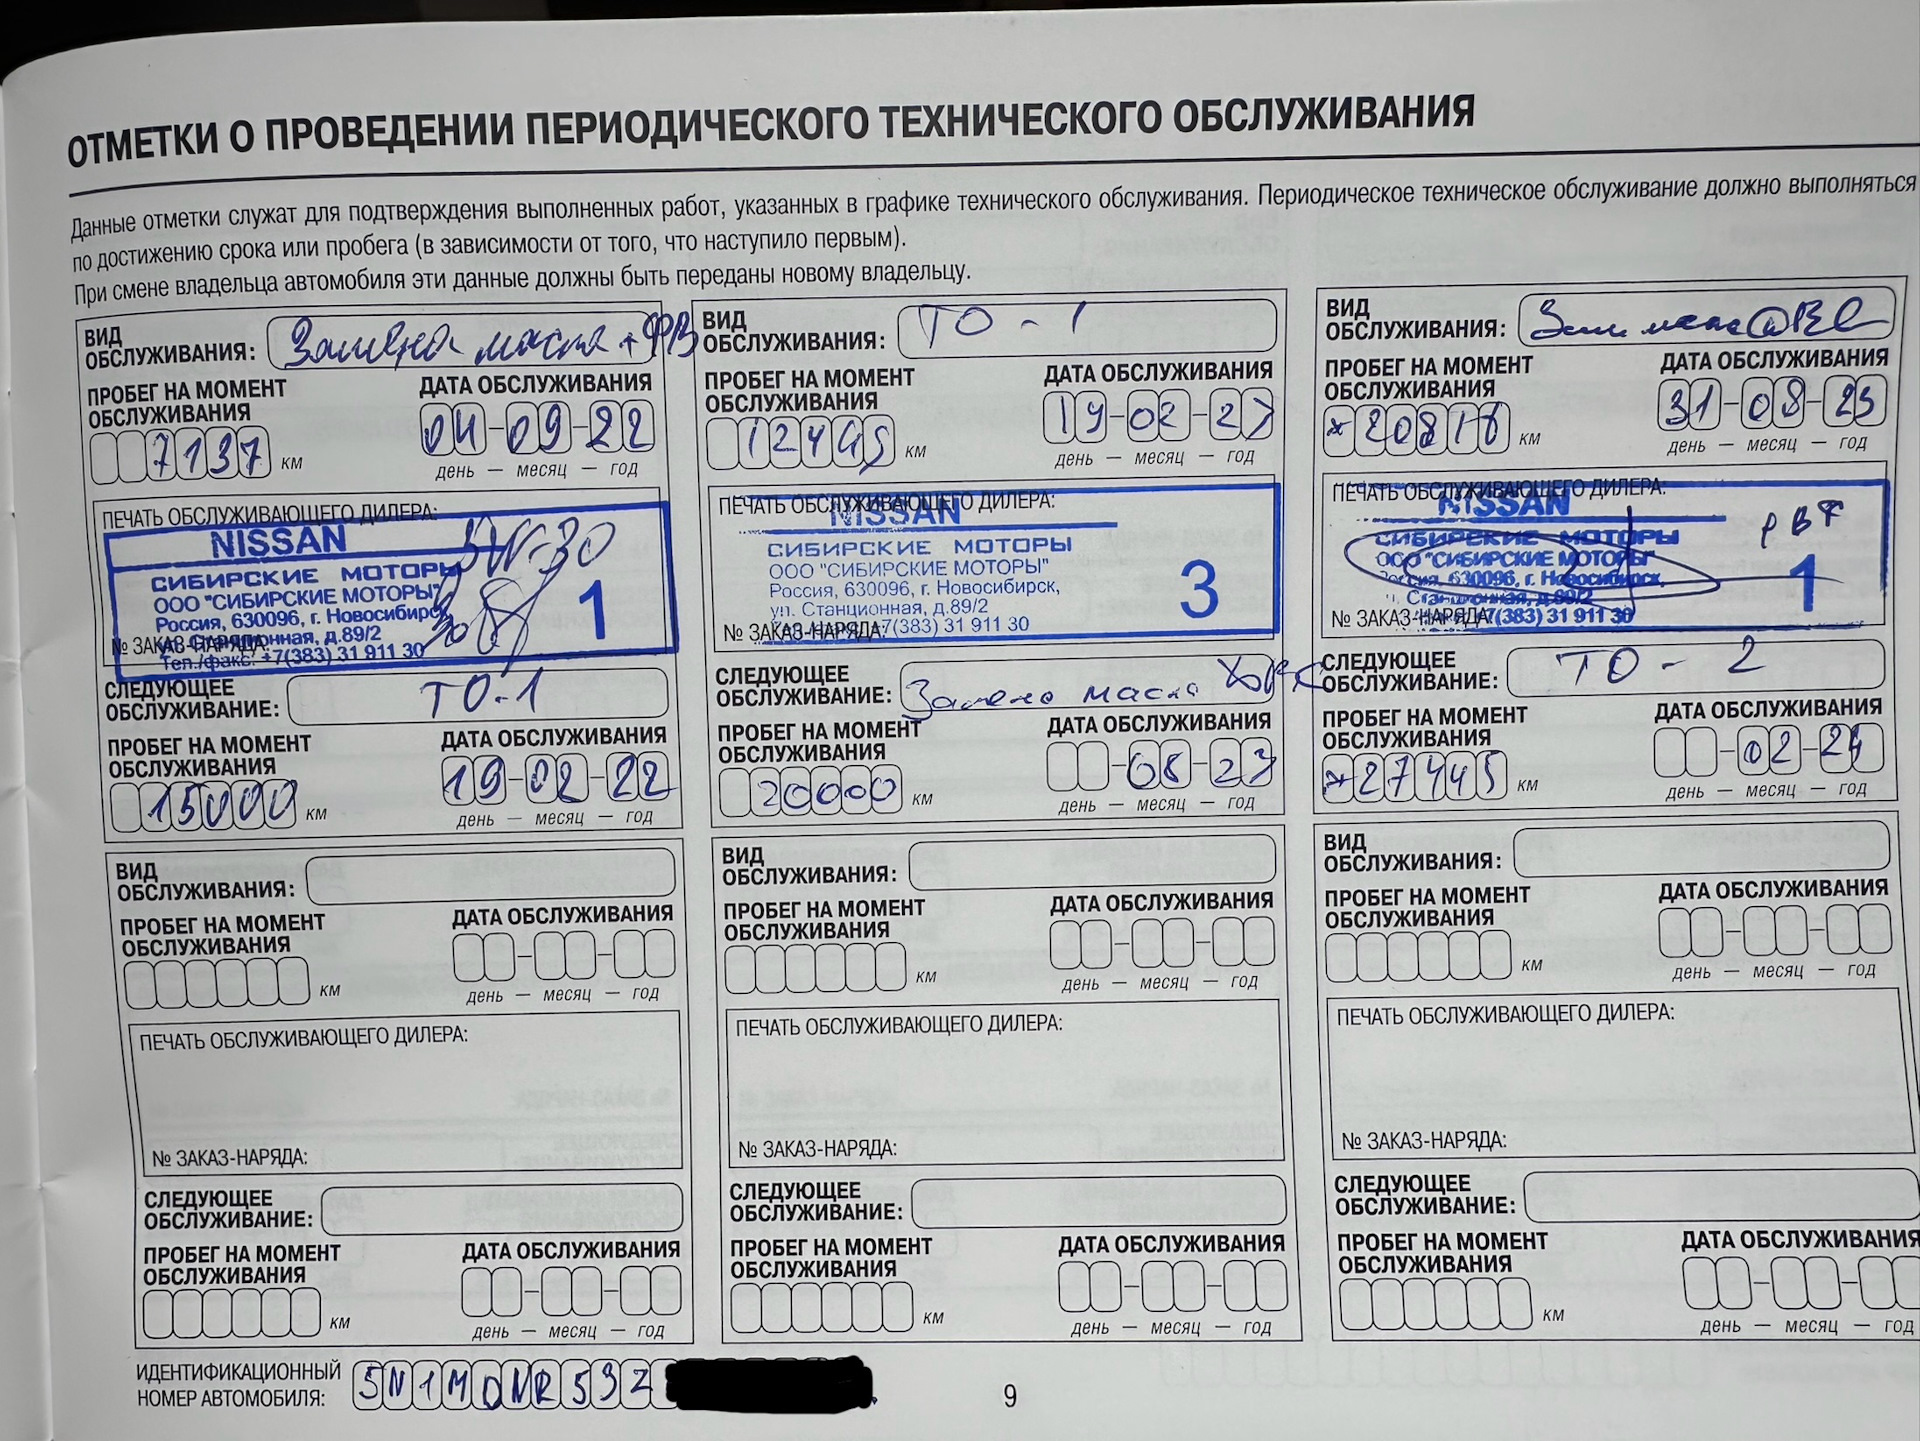 ОТМЕТКИ О ПРОВЕДЕНИИ ПЕРИОДИЧЕСКОГО ТЕХНИЧЕСКОГО ОБСЛУЖИВАНИЯ
Данные отметки служат для подтверждения выполненных работ, указанных в графике технического обслуживания. Периодическое техническое обслуживание должно выполняться
по достижению срока или пробега (в зависимости от того, что наступило первым).
При смене владельца автомобиля эти данные должны быть переданы новому владельцу.
ВИД
ОБСЛУЖИВАНИЯ: Замена масла + ФВ
ПРОБЕГ НА МОМЕНТ
ОБСЛУЖИВАНИЯ
7137 км
ДАТА ОБСЛУЖИВАНИЯ
04-09-22
день — месяц — год
ПЕЧАТЬ ОБСЛУЖИВАЮЩЕГО ДИЛЕРА:
NISSAN
СИБИРСКИЕ МОТОРЫ
ООО "СИБИРСКИЕ МОТОРЫ"
Россия, 630096, г. Новосибирск,
ул. Станционная, д.89/2
Тел./факс: +7(383) 31 911 30
1
№ ЗАКАЗ-НАРЯДА:
СЛЕДУЮЩЕЕ
ОБСЛУЖИВАНИЕ: ТО-1
ПРОБЕГ НА МОМЕНТ
ОБСЛУЖИВАНИЯ
15000 км
ДАТА ОБСЛУЖИВАНИЯ
19-02-22
день — месяц — год
ВИД
ОБСЛУЖИВАНИЯ: ТО - 1
ПРОБЕГ НА МОМЕНТ
ОБСЛУЖИВАНИЯ
12445 км
ДАТА ОБСЛУЖИВАНИЯ
19-02-23
день — месяц — год
ПЕЧАТЬ ОБСЛУЖИВАЮЩЕГО ДИЛЕРА:
NISSAN
СИБИРСКИЕ МОТОРЫ
ООО "СИБИРСКИЕ МОТОРЫ"
Россия, 630096, г. Новосибирск,
ул. Станционная, д.89/2
+7(383) 31 911 30
3
№ ЗАКАЗ-НАРЯДА:
СЛЕДУЮЩЕЕ
ОБСЛУЖИВАНИЕ: Замена масла
ПРОБЕГ НА МОМЕНТ
ОБСЛУЖИВАНИЯ
20000 км
ДАТА ОБСЛУЖИВАНИЯ
08-23
день — месяц — год
ВИД
ОБСЛУЖИВАНИЯ:
ПРОБЕГ НА МОМЕНТ
ОБСЛУЖИВАНИЯ
*20816 км
ДАТА ОБСЛУЖИВАНИЯ
31-08-23
день — месяц — год
ПЕЧАТЬ ОБСЛУЖИВАЮЩЕГО ДИЛЕРА:
NISSAN
СИБИРСКИЕ МОТОРЫ
ООО "СИБИРСКИЕ МОТОРЫ"
Россия, 630096, г. Новосибирск,
ул. Станционная, д.89/2
+7(383) 31 911 30
1
№ ЗАКАЗ-НАРЯДА:
СЛЕДУЮЩЕЕ
ОБСЛУЖИВАНИЕ: ТО - 2
ПРОБЕГ НА МОМЕНТ
ОБСЛУЖИВАНИЯ
*27445 км
ДАТА ОБСЛУЖИВАНИЯ
02-24
день — месяц — год
ВИД
ОБСЛУЖИВАНИЯ:
ПРОБЕГ НА МОМЕНТ
ОБСЛУЖИВАНИЯ
км
ДАТА ОБСЛУЖИВАНИЯ
день — месяц — год
ПЕЧАТЬ ОБСЛУЖИВАЮЩЕГО ДИЛЕРА:
№ ЗАКАЗ-НАРЯДА:
СЛЕДУЮЩЕЕ
ОБСЛУЖИВАНИЕ:
ПРОБЕГ НА МОМЕНТ
ОБСЛУЖИВАНИЯ
км
ДАТА ОБСЛУЖИВАНИЯ
день — месяц — год
ВИД
ОБСЛУЖИВАНИЯ:
ПРОБЕГ НА МОМЕНТ
ОБСЛУЖИВАНИЯ
км
ДАТА ОБСЛУЖИВАНИЯ
день — месяц — год
ПЕЧАТЬ ОБСЛУЖИВАЮЩЕГО ДИЛЕРА:
№ ЗАКАЗ-НАРЯДА:
СЛЕДУЮЩЕЕ
ОБСЛУЖИВАНИЕ:
ПРОБЕГ НА МОМЕНТ
ОБСЛУЖИВАНИЯ
км
ДАТА ОБСЛУЖИВАНИЯ
день — месяц — год
ВИД
ОБСЛУЖИВАНИЯ:
ПРОБЕГ НА МОМЕНТ
ОБСЛУЖИВАНИЯ
км
ДАТА ОБСЛУЖИВАНИЯ
день — месяц — год
ПЕЧАТЬ ОБСЛУЖИВАЮЩЕГО ДИЛЕРА:
№ ЗАКАЗ-НАРЯДА:
СЛЕДУЮЩЕЕ
ОБСЛУЖИВАНИЕ:
ПРОБЕГ НА МОМЕНТ
ОБСЛУЖИВАНИЯ
км
ДАТА ОБСЛУЖИВАНИЯ
день — месяц — год
ИДЕНТИФИКАЦИОННЫЙ
НОМЕР АВТОМОБИЛЯ: 5N1M0NR53Z
9